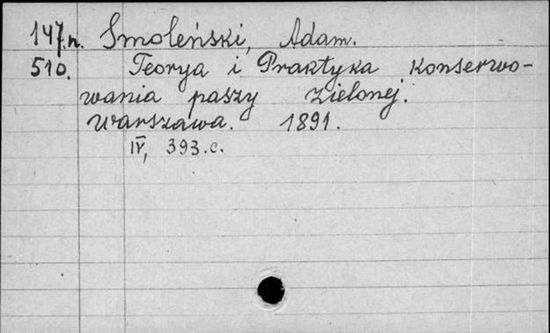 147.n. Smoleński, Adam.
510. Teorya i Praktyka konserwo-
wania paszy zielonej.
Warszawa. 1891.
IV, 393.c.